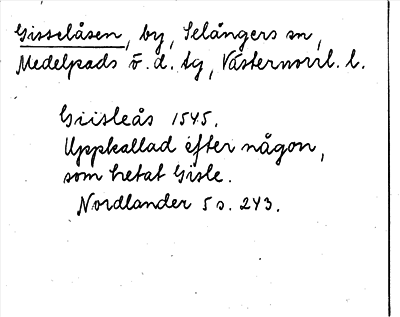 Gisselåsen, by, Selångers sn,
Medelpads ö. d. tg, Västernorrl. l.
Giisleås 1545.
Uppkallad efter någon,
som hetat Gisle.
Nordlander 5 s. 243.